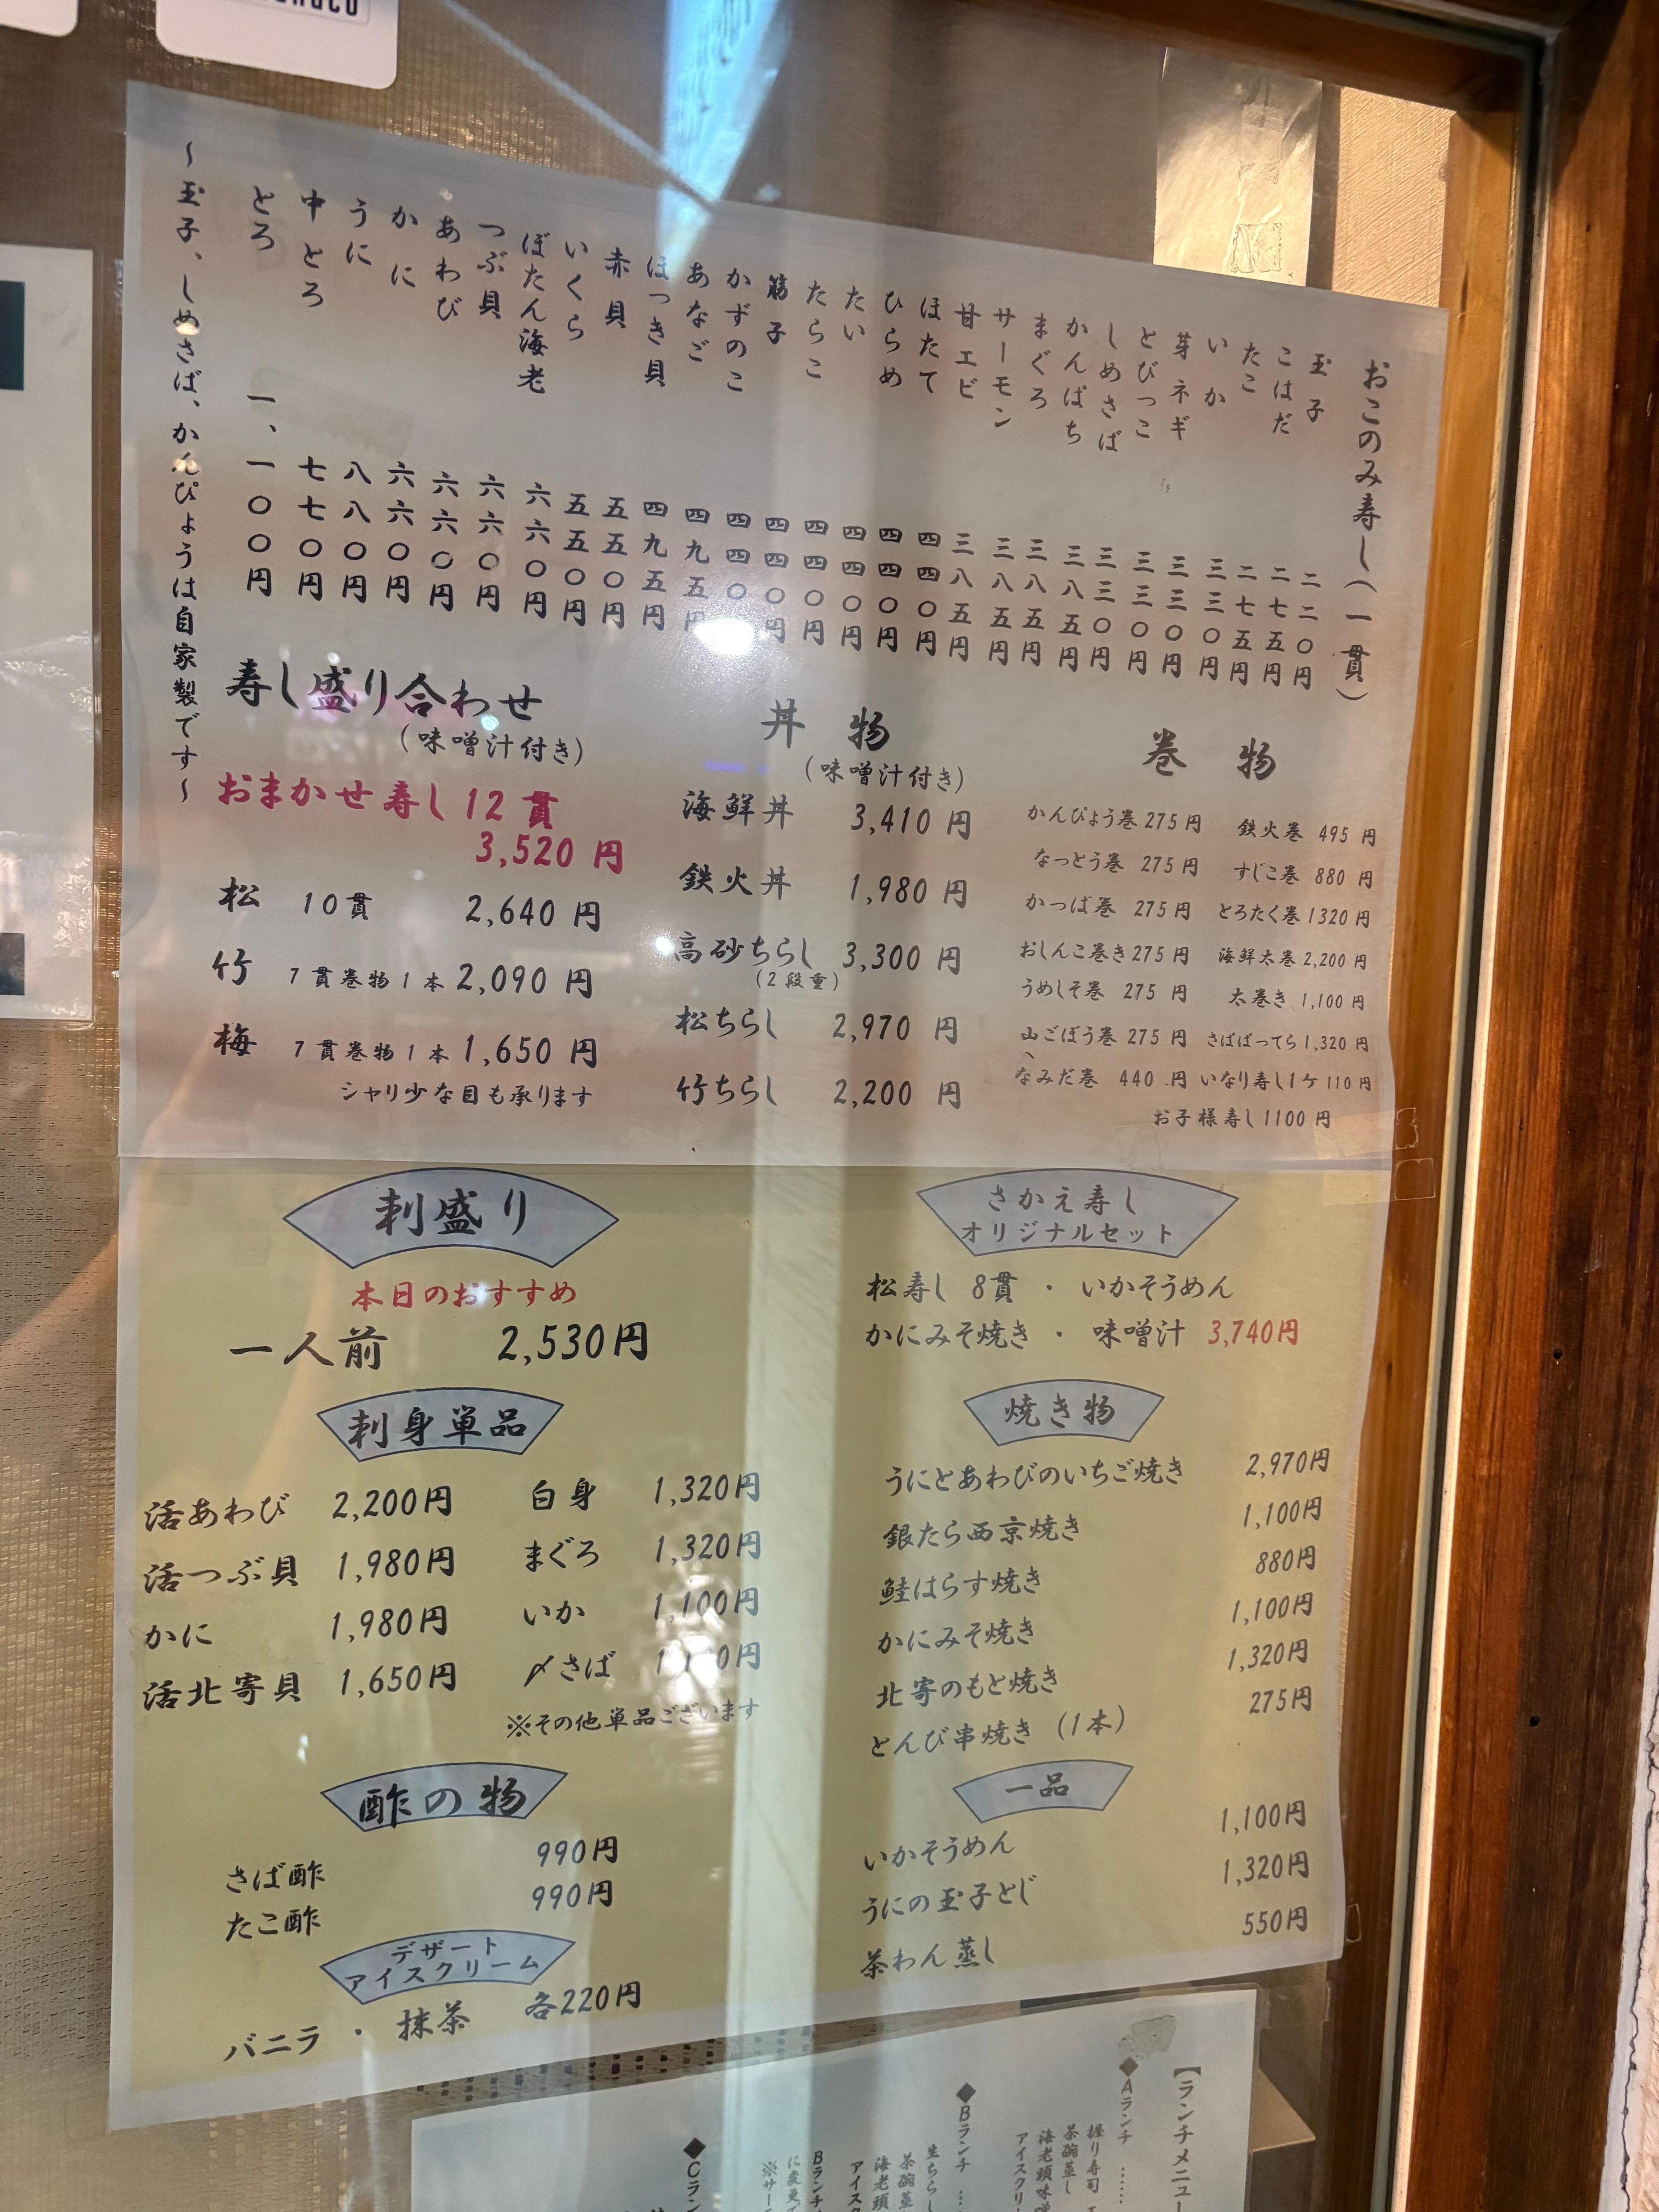 おこのみ寿し(一貫)
玉子 二二〇円
こはだ 二七五円
たこ 二七五円
いか 三三〇円
芽ネギ 三三〇円
とびっこ 三三〇円
しめさば 三三〇円
かんぱち 三八五円
まぐろ 三八五円
サーモン 三八五円
甘エビ 三八五円
ほたて 四四〇円
ひらめ 四四〇円
たい 四四〇円
たらこ 四四〇円
筋子 四四〇円
かずのこ 四四〇
あなご 四九五円
ほっき貝 四九五円
赤貝 五五〇円
いくら 五五〇円
ぼたん海老 六六〇円
つぶ貝 六六〇円
あわび 六六〇円
かに 六六〇円
うに 八八〇円
中とろ 七七〇円
とろ 一、一〇〇円
~玉子、しめさば、かんぴょうは自家製です~
寿し盛り合わせ
(味噌汁付き)
おまかせ寿し12貫
3,520円
松 10貫 2,640円
竹 7貫巻物1本 2,090円
梅 7貫巻物1本 1,650円
シャリ少な目も承ります
丼 物
(味噌汁付き)
海鮮丼 3,410円
鉄火丼 1,980円
高砂ちらし 3,300円
(2段重)
松ちらし 2,970円
竹ちらし 2,200円
巻 物
かんぴょう巻 275円 鉄火巻 495円
なっとう巻 275円 すじこ巻 880円
かっぱ巻 275円 とろたく巻 1320円
おしんこ巻き 275円 海鮮太巻 2,200円
うめしそ巻 275円 太巻き 1,100円
山ごぼう巻 275円 さばばってら 1,320円
なみだ巻 440円 いなり寿し1ケ 110円
お子様寿し 1100円
刺盛り
本日のおすすめ
一人前 2,530円
刺身単品
活あわび 2,200円 白身 1,320円
活つぶ貝 1,980円 まぐろ 1,320円
かに 1,980円 いか 1,100円
活北寄貝 1,650円 〆さば
※その他単品ございます
酢の物
さば酢 990円
たこ酢 990円
デザート
アイスクリーム
バニラ・抹茶 各220円
さかえ寿し
オリジナルセット
松寿し 8貫・いかそうめん
かにみそ焼き・味噌汁 3,740円
焼き物
うにとあわびのいちご焼き 2,970円
銀たら西京焼き 1,100円
鮭はらす焼き 880円
かにみそ焼き 1,100円
北寄のもと焼き 1,320円
とんび串焼き(1本) 275円
一品
いかそうめん 1,100円
うにの玉子とじ 1,320円
茶わん蒸し 550円
【ランチメニュー
◆Aランチ
握り寿司
茶碗蒸し
海老頭味噌
アイスクリー
◆Bランチ
生ちらし
茶碗蒸
海老頭
アイス
Bランチ
に変更
※サー
◆Cラン